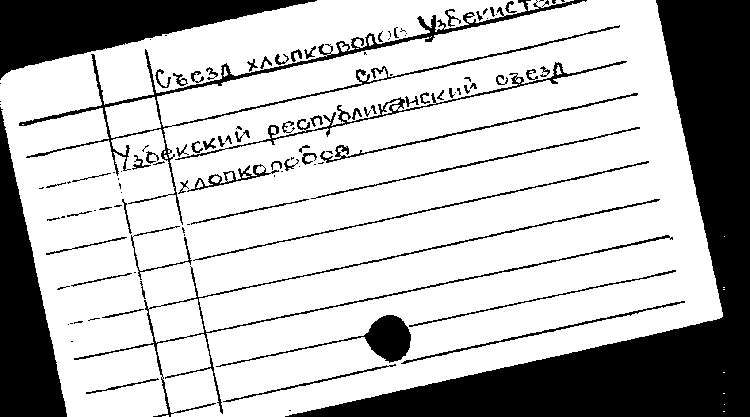 Съезд хлопководов Узбекистана
см.
Узбекский республиканский съезд
хлопкоробов.